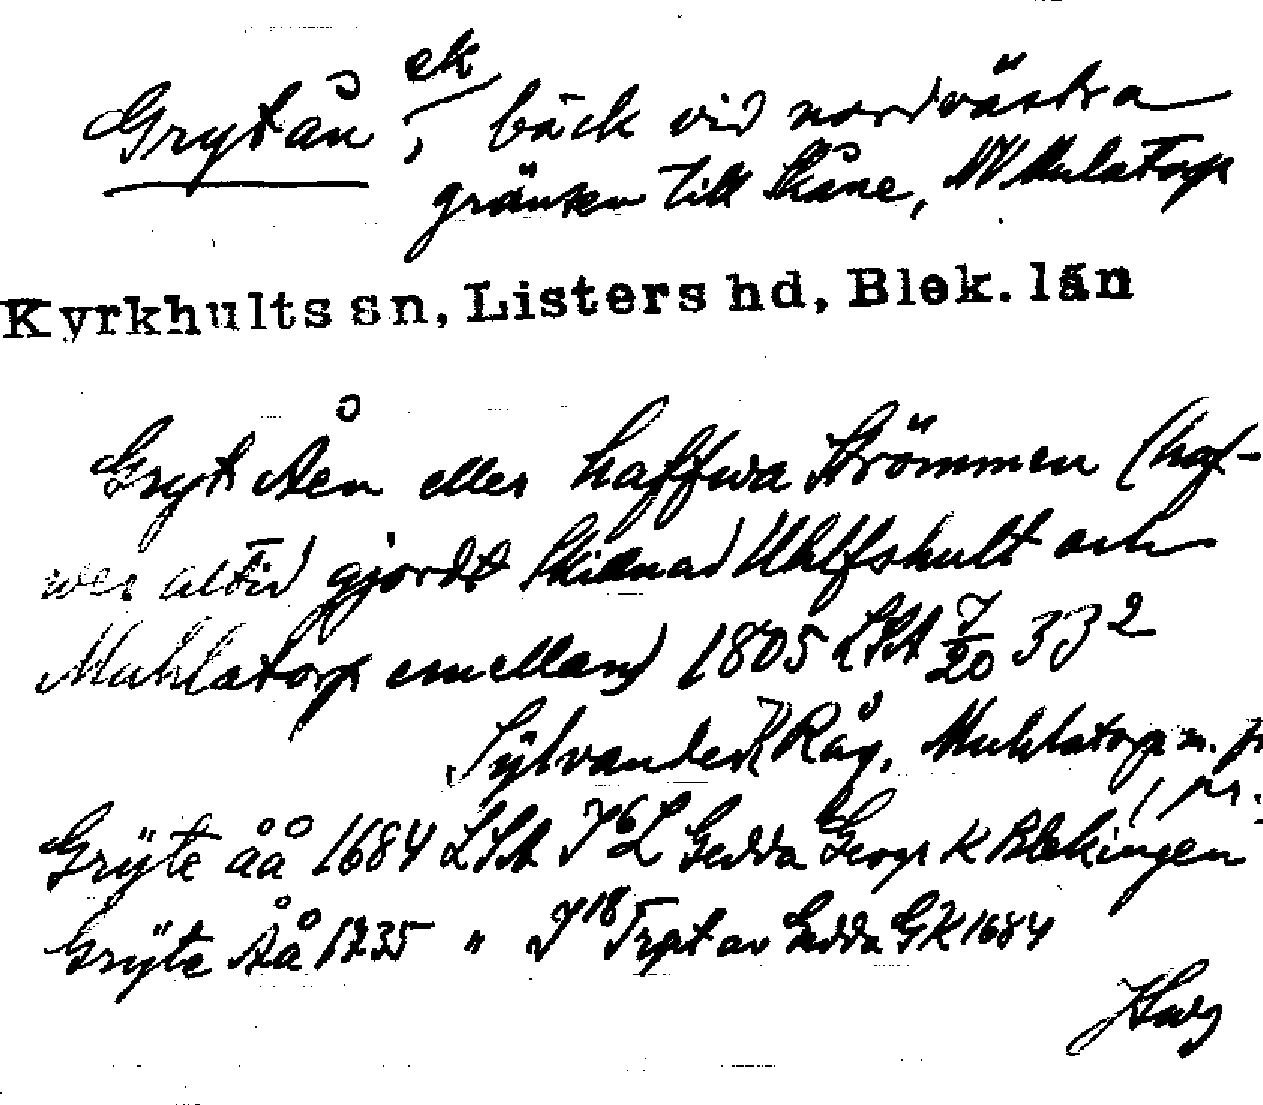 Grytån ek, bäck vid nordvästra
gränsen till Skåne, NV Mulatorp
Kyrkhults sn, Listers hd, Blek. län
Gryt Åen eller haffwa Strömmen (haf-
wer altid gjordt Skilnad Uhlfshult och
Muhlatorp emellan) 1805 LSA 7/20 33²
Sylvander Råg. Muhlatorp m. fl
Grÿte åå 1684 LSA I6 Gedda Geogr K Blekingen
Grÿte Åå 1735 " I18 av Gedda GK 1684